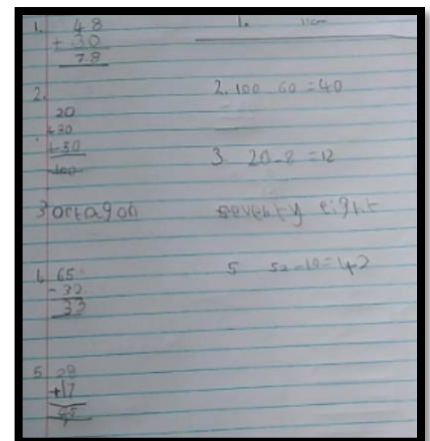 1. 48
+ 30
78
2.
20
+30
+50
100
3 octagon
4 65
- 32
33
5 28
+17
45
1. 11cm
2. 100 60 = 40
3 20-8 = 12
seventy eight
5 52-10=42